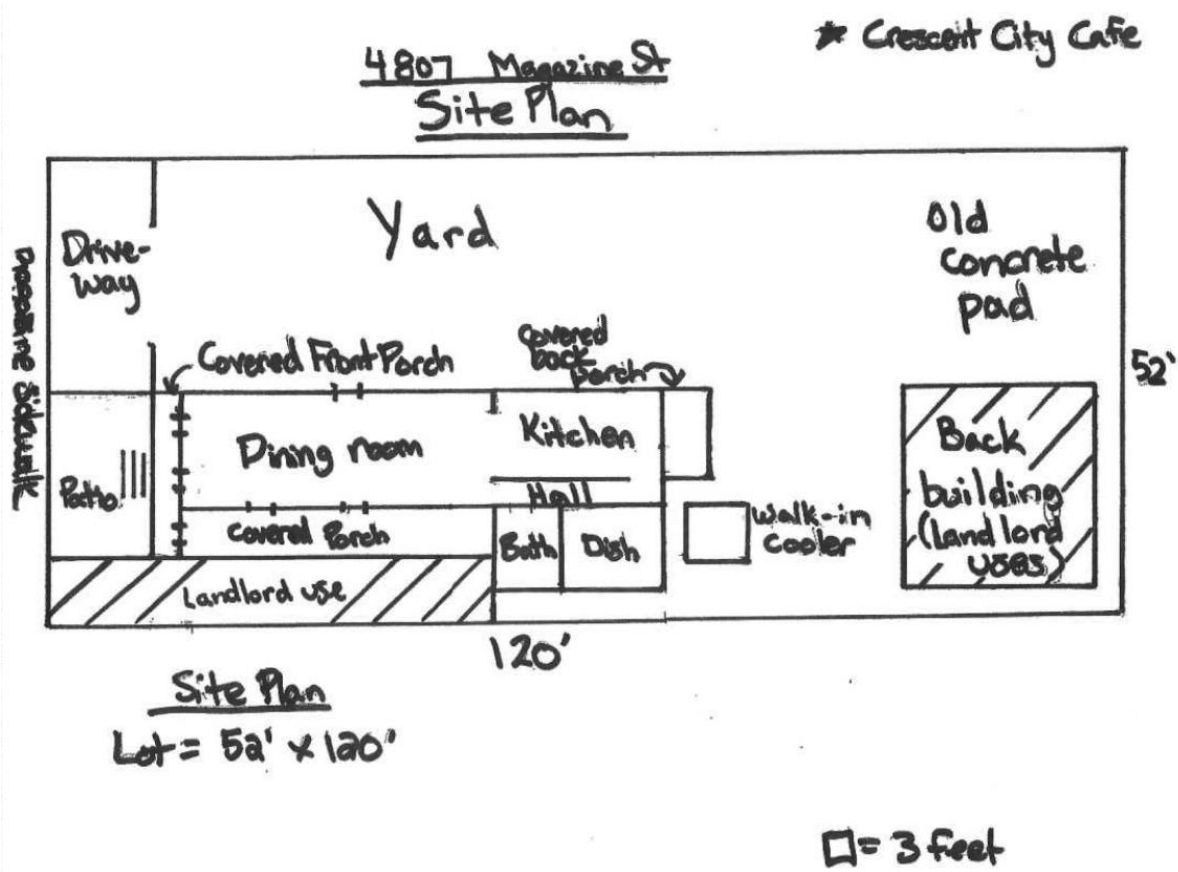 * Crescent City Cafe
4807 Magazine St
Site Plan
Yard
Old
concrete
pad
Drive-
way
Sidewalk
Covered Front Porch
covered
back
porch
52'
Dining room
Kitchen
Hall
Patio
covered Porch
Bath
Dish
Walk-in
Cooler
Back
building
(Landlord
uses)
Landlord use
120'
Site Plan
Lot = 52' x 120'
□ = 3 feet